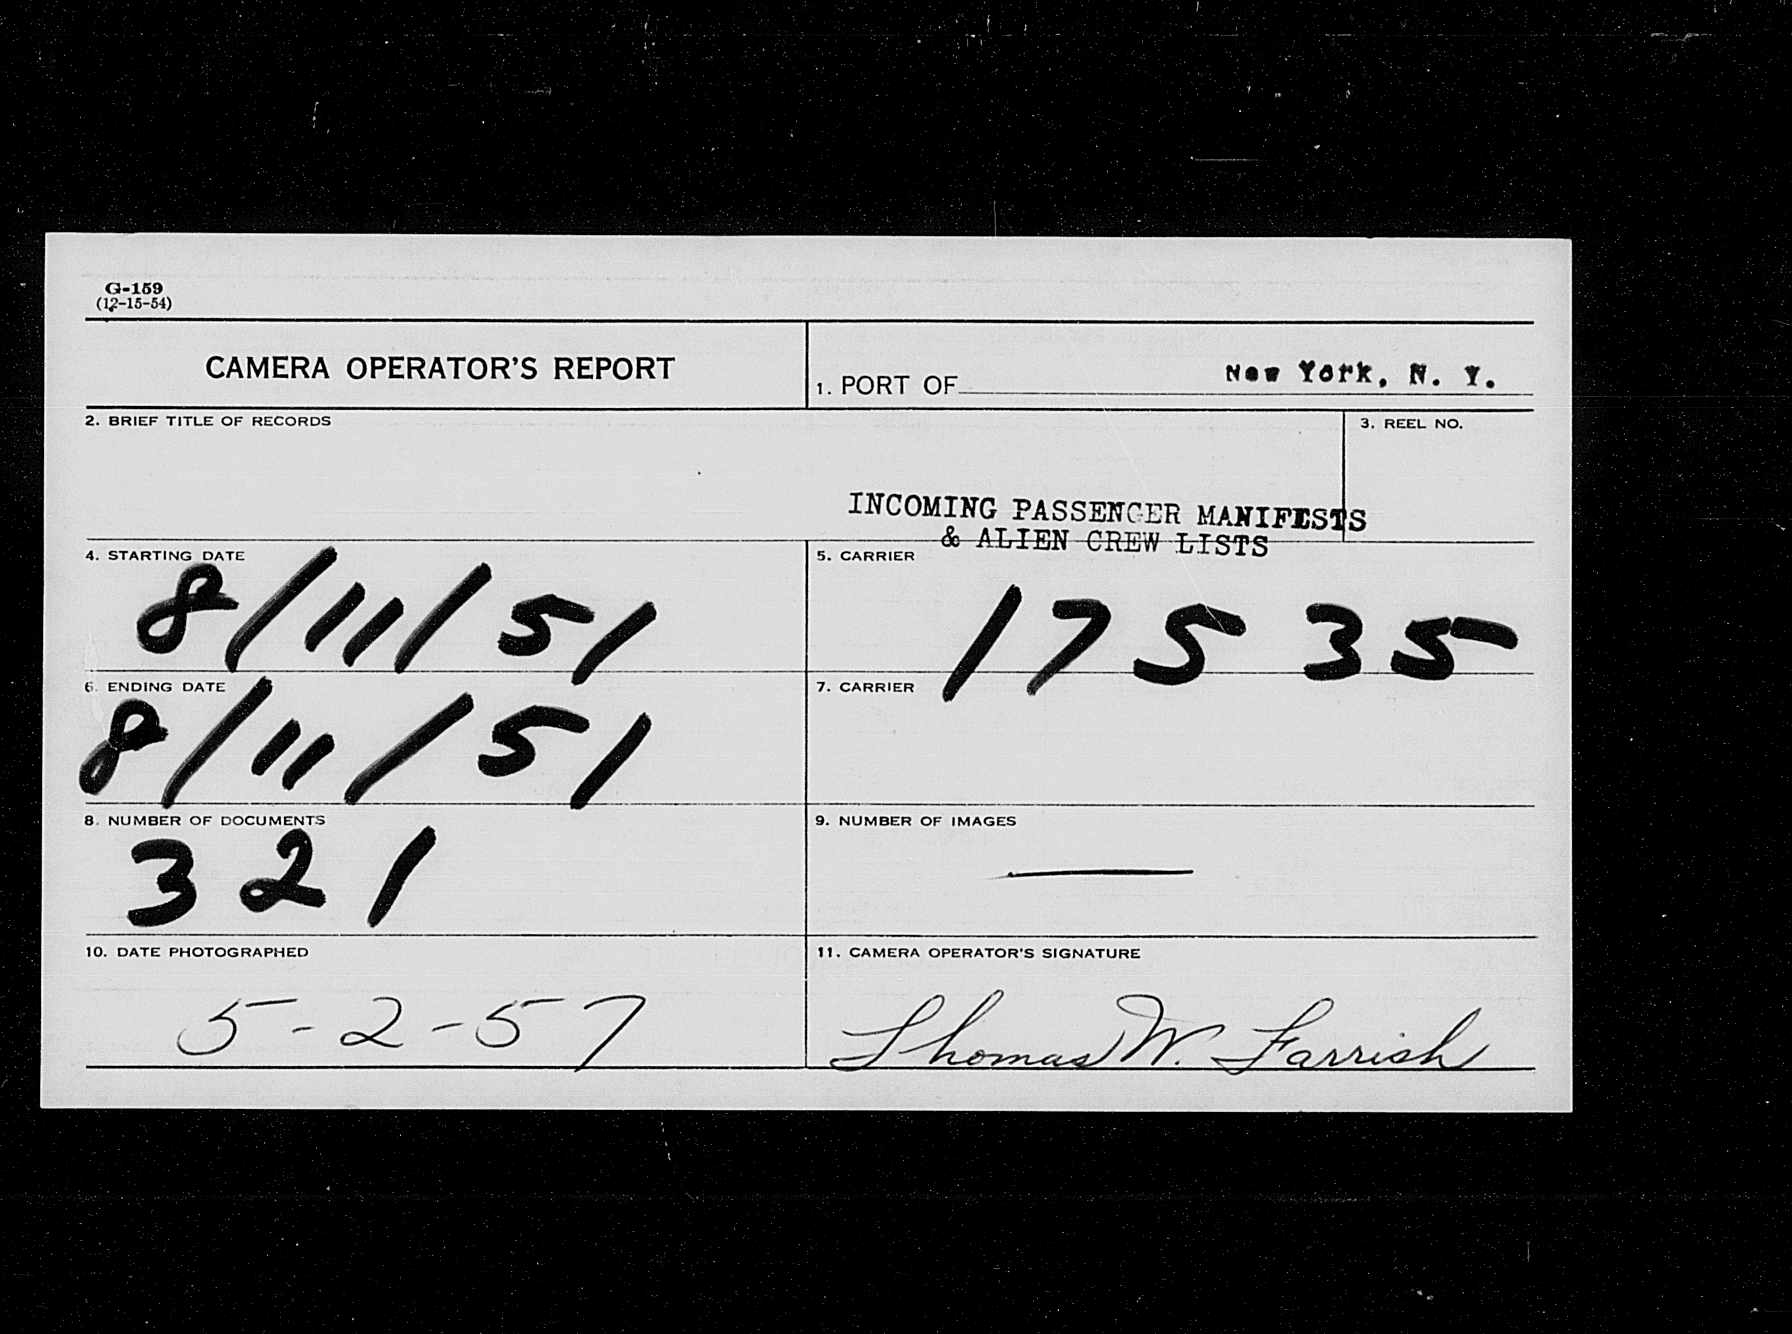 G-159
(12-15-54)
CAMERA OPERATOR'S REPORT
1. PORT OF New York, N. Y.
2. BRIEF TITLE OF RECORDS
3. REEL NO.
INCOMING PASSENGER MANIFESTS
& ALIEN CREW LISTS
4. STARTING DATE
8/11/51
5. CARRIER
17535
6. ENDING DATE
8/11/51
7. CARRIER
8. NUMBER OF DOCUMENTS
321
9. NUMBER OF IMAGES
—
10. DATE PHOTOGRAPHED
5-2-57
11. CAMERA OPERATOR'S SIGNATURE
Thomas W. Farrish